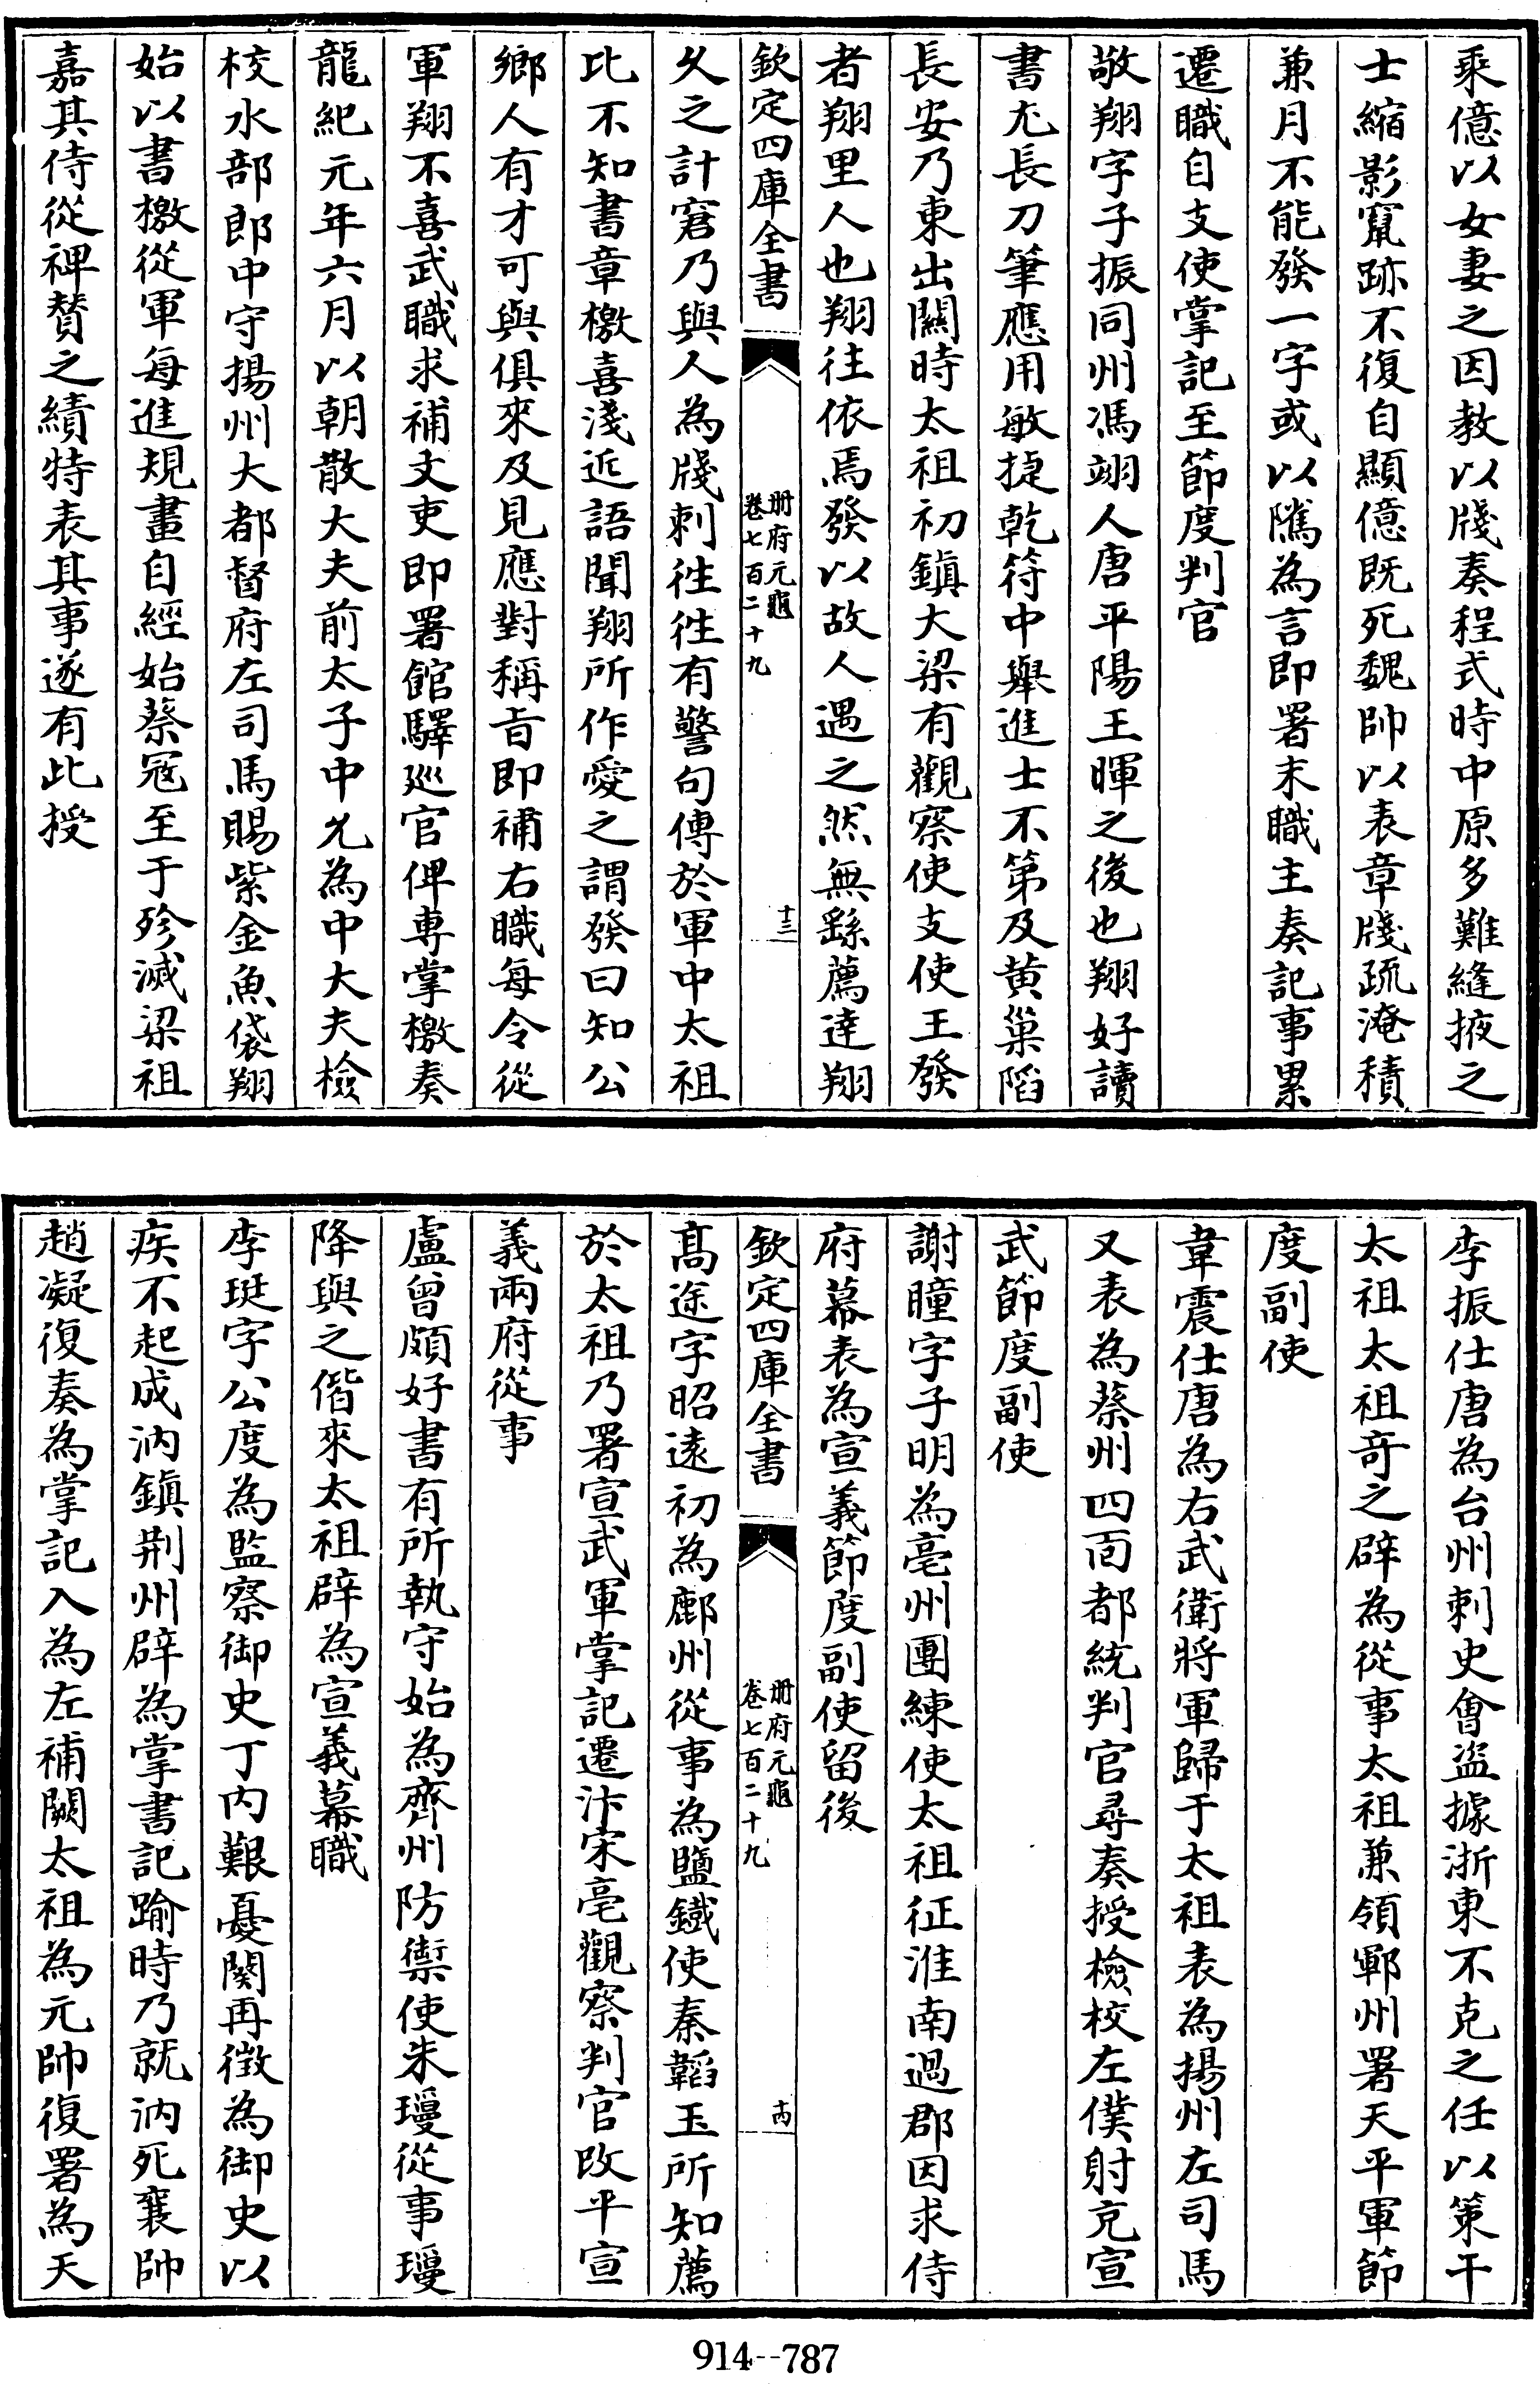 乘億以女妻之因教以牋奏程式時中原多難縫掖之
士縮影竄跡不復自顯億既死魏帥以表章牋疏淹積
兼月不能發一字或以隲為言即署末職主奏記事累
遷職自支使掌記至節度判官
敬翔字子振同州馮翊人唐平陽王暉之後也翔好讀
書尤長刀筆應用敏捷乾符中舉進士不第及黄巢陷
長安乃東出關時太祖初鎮大梁有觀察使支使王發
者翔里人也翔往依焉發以故人遇之然無繇薦達翔
欽定四庫全書
冊府元龜
卷七百二十九
十三
久之計窘乃與人為牋刺徃徃有警句傳於軍中太祖
比不知書章檄喜淺近語聞翔所作愛之謂發曰知公
鄉人有才可與俱來及見應對稱旨即補右職每令從
軍翔不喜武職求補文吏即署館驛廵官俾專掌檄奏
龍紀元年六月以朝散大夫前太子中允為中大夫檢
校水部郎中守揚州大都督府左司馬賜紫金魚袋翔
始以書檄從軍每進規畫自經始蔡冦至于殄滅梁祖
嘉其侍從禆賛之績特表其事遂有此授
李振仕唐為台州刺史會盜據浙東不克之任以策干
太祖太祖竒之辟為從事太祖兼領鄆州署天平軍節
度副使
韋震仕唐為右武衛將軍歸于太祖表為揚州左司馬
又表為蔡州四面都統判官尋奏授檢校左僕射兗宣
武節度副使
謝瞳字子明為亳州團練使太祖征淮南過郡因求侍
府幕表為宣義節度副使留後
欽定四庫全書
冊府元龜
卷七百二十九
十四
髙途字昭遠初為鄜州從事為鹽鐵使秦韜玉所知薦
於太祖乃署宣武軍掌記遷汴宋亳觀察判官改平宣
義兩府從事
盧曾頗好書有所執守始為齊州防禦使朱瓊從事瓊
降與之偕來太祖辟為宣義幕職
李珽字公度為監察御史丁内艱憂闋再徴為御史以
疾不起成汭鎮荆州辟為掌書記踰時乃就汭死襄帥
趙凝復奏為掌記入為左補闕太祖為元帥復署為天
914--787